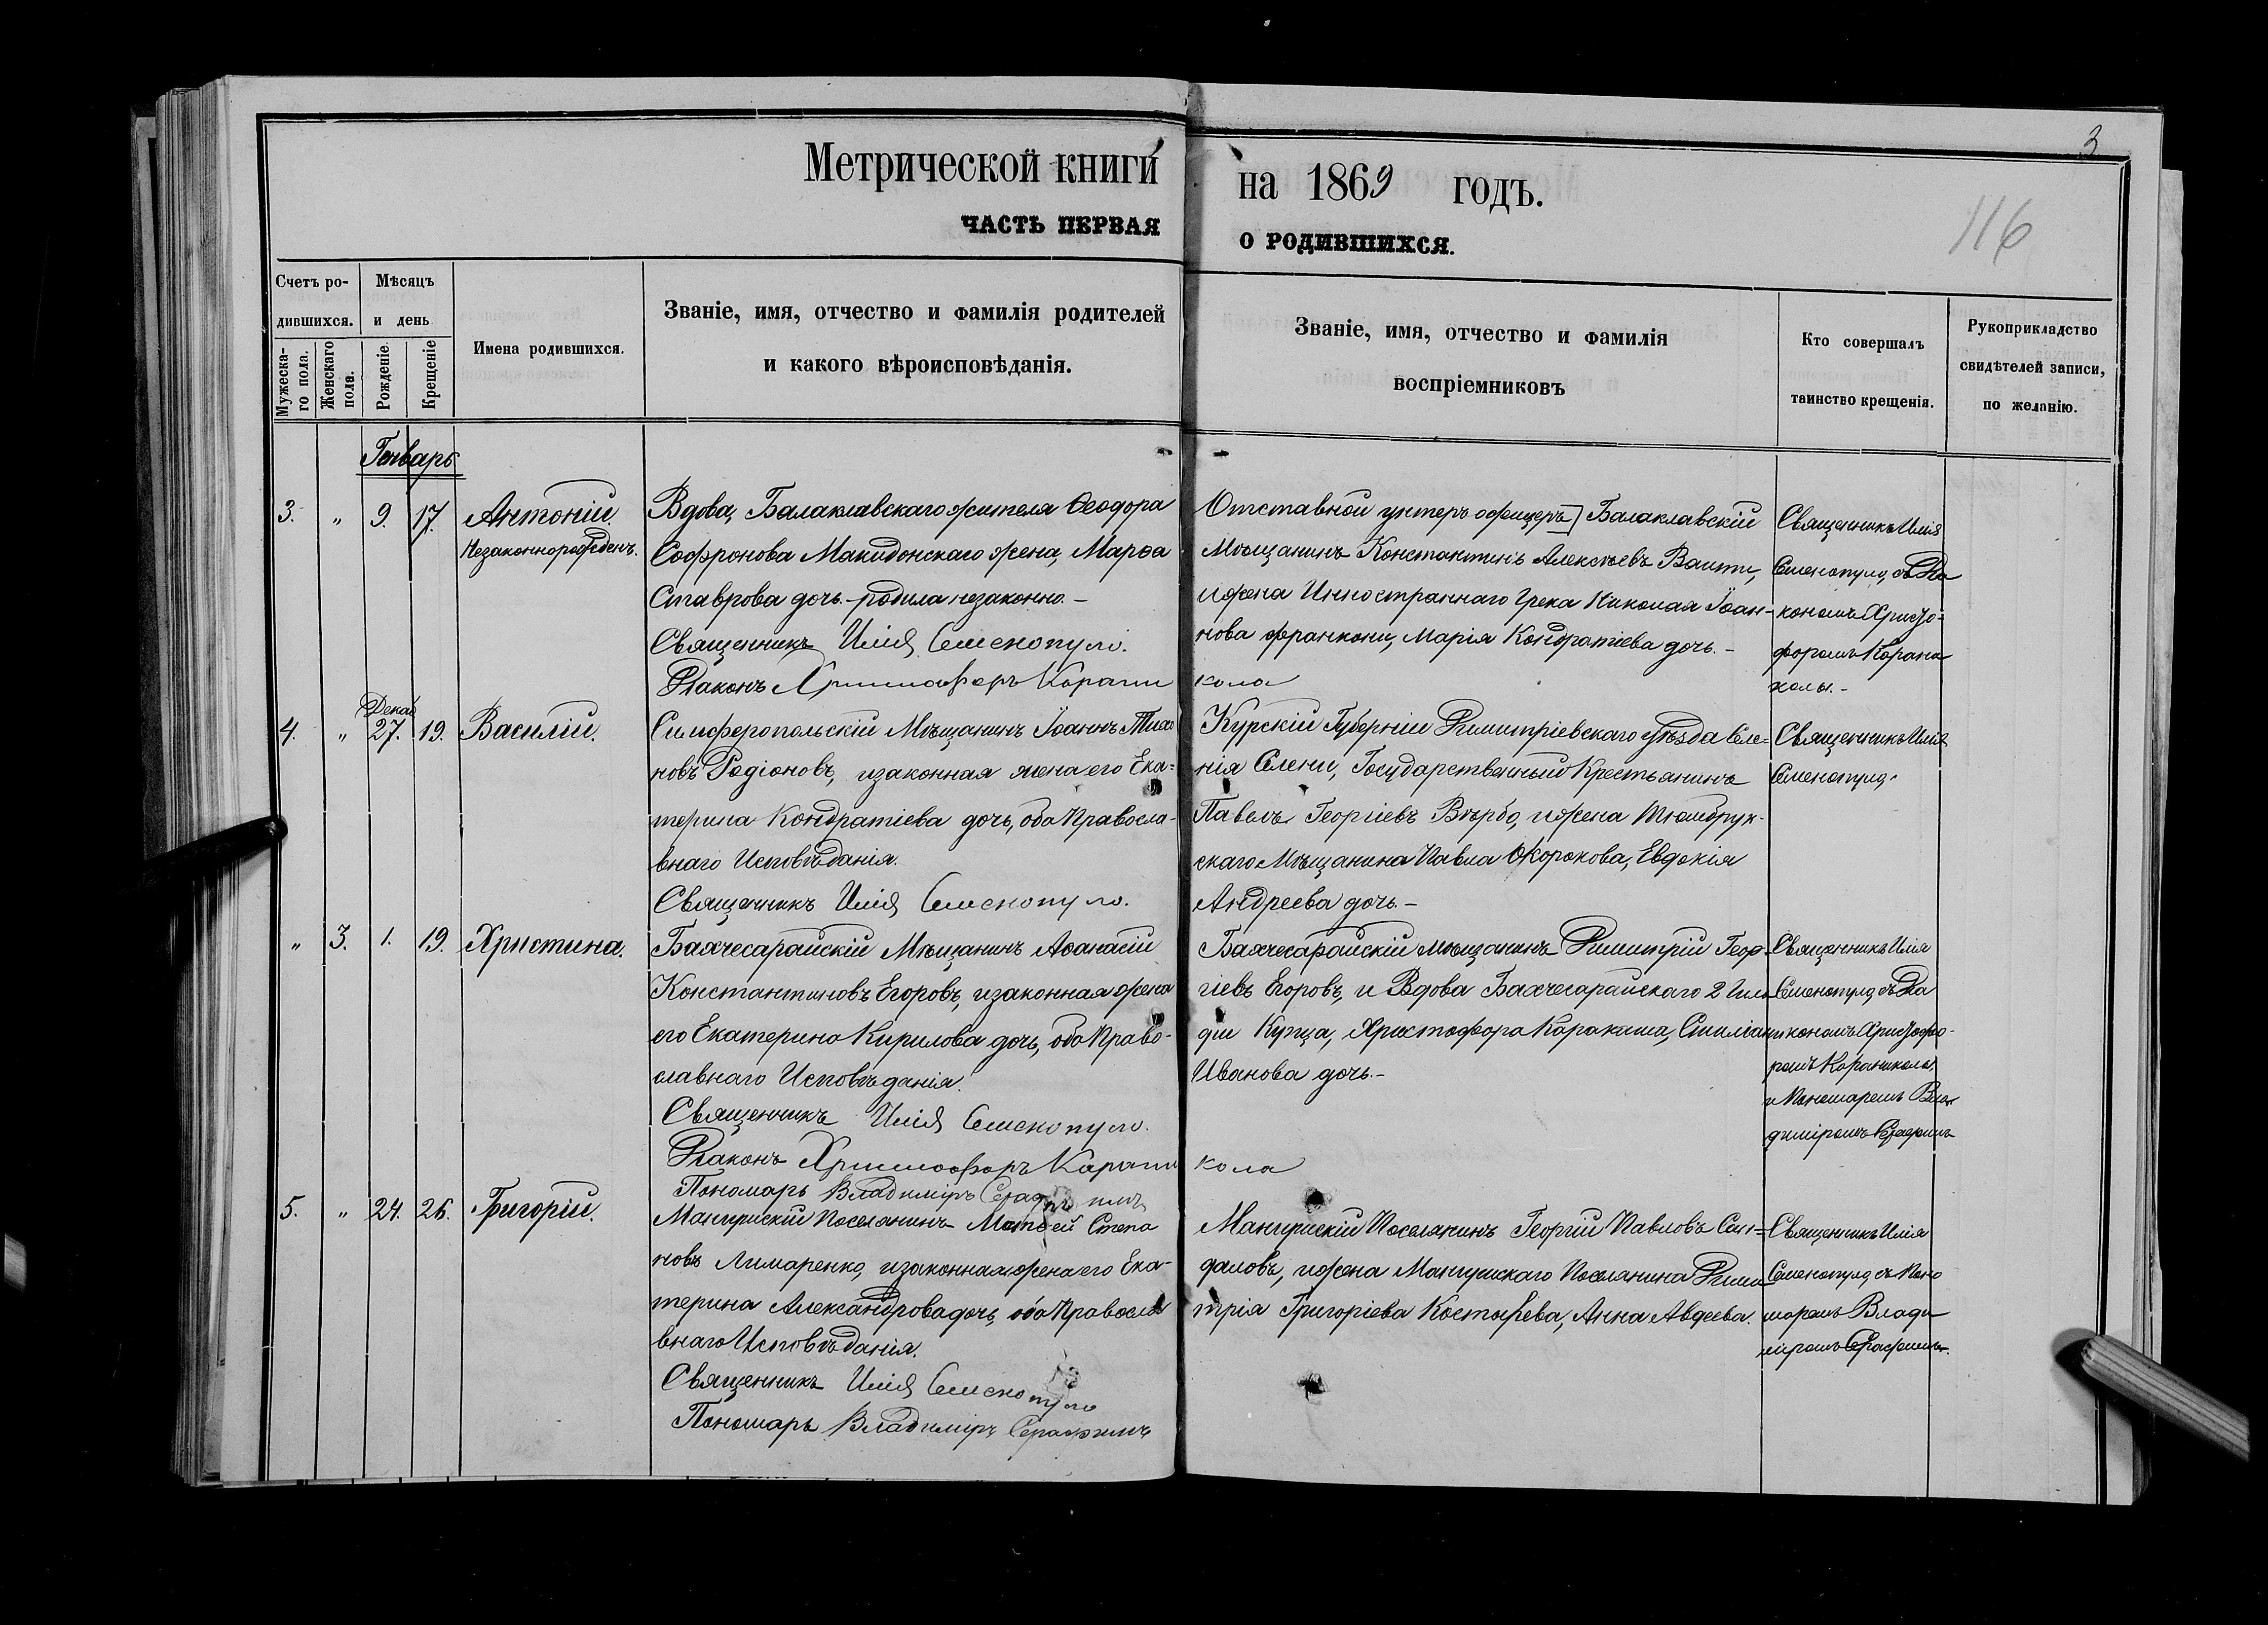 3
116
Метрической книги на 1869 годъ.
ЧАСТЬ ПЕРВАЯ О РОДИВШИХСЯ.
Счетъ ро-
дившихся.
Мужеска-
го пола.
Женскаго
пола.
Мѣсяцъ
и день
Рожденіе.
Крещеніе
Имена родившихся.
Званіе, имя, отчество и фамилія родителей
и какого вѣроисповѣданія.
Званіе, имя, отчество и фамилія
воспріемниковъ
Кто совершалъ
таинство крещенія.
Рукоприкладство
свидѣтелей записи,
по желанію.
Генварь
3. " 9. 17. Антоній.
Незаконнорожденъ.
Вдова, Балаклавскаго жителя Ѳеодора
Софронова Макидонскаго жена, Марѳа
Ставрова дочь.- родила незаконно.-
Священникъ Илія Семенопуло.
Діаконъ Христофоръ Карани кола
Отставной унтеръ офицеръ Балаклавскій
Мѣщанинъ Константинъ Алексѣевъ
и жена Инностраннаго Грека Николая Іоан-
нова Франкони, Марія Кондратіева дочь.-
Священникъ Илія
Семенопуло, съ Діа
кономъ Христо-
форомъ Карани
колы.-
4. " Декаб 27. 19. Василій.
Симферопольскій Мѣщанинъ Іоаннъ
новъ Родіоновъ, и законная жена его Ека-
терина Кондратіева дочь, оба Правосла-
внаго Исповѣданія.
Священникъ Илія Семенопуло.
Курскій Губерніи Димитріевскаго уѣзда Селе-
нія Селени, Государственный Крестьянинъ
Павелъ Георгіевъ Вѣрбо, и жена
скаго Мѣщанина Павла Окорокова, Евдокія
Андреева дочь.-
Священникъ Илія
Семенопуло.
" 3. 1. 19. Христина.
Бахчесарайскій Мѣщанинъ Аѳанасій
Константиновъ Егоровъ, и законная жена
его Екатерина Кирилова дочь, оба Право-
славнаго Исповѣданія.
Священникъ Илія Семенопуло.
Діаконъ Христофоръ Карани кола
Пономарь Владиміръ Серафимъ
Бахчесарайскій Мѣщанинъ Димитрій Геор-
гіевъ Егоровъ, и Вдова Бахчесарайскаго 2 Гиль
діи Купца, Христофора Каракаша,
Иванова дочь.-
Священникъ Илія
Семенопуло, съ Діа
кономъ Христофо-
ромъ Караникола,
и Пономаремъ Вла-
диміромъ Серафимъ
5. " 24. 26. Григорій.
Мангушскій Поселянинъ Матѳей Степа
новъ Лимаренко, и законная жена его Ека-
терина Александрова дочь, оба Правосла
внаго Исповѣданія.
Священникъ Илія Семенопуло
Пономарь Владиміръ Серафимъ
Мангушскій Поселянинъ Георгій Павловъ
даловъ, и жена Мангушскаго Поселянина Дими
трія Григоріева Костырева, Анна Авдеева.
Священникъ Илія
Семенопуло, съ Поно
маремъ Влади
міромъ Серафимъ.